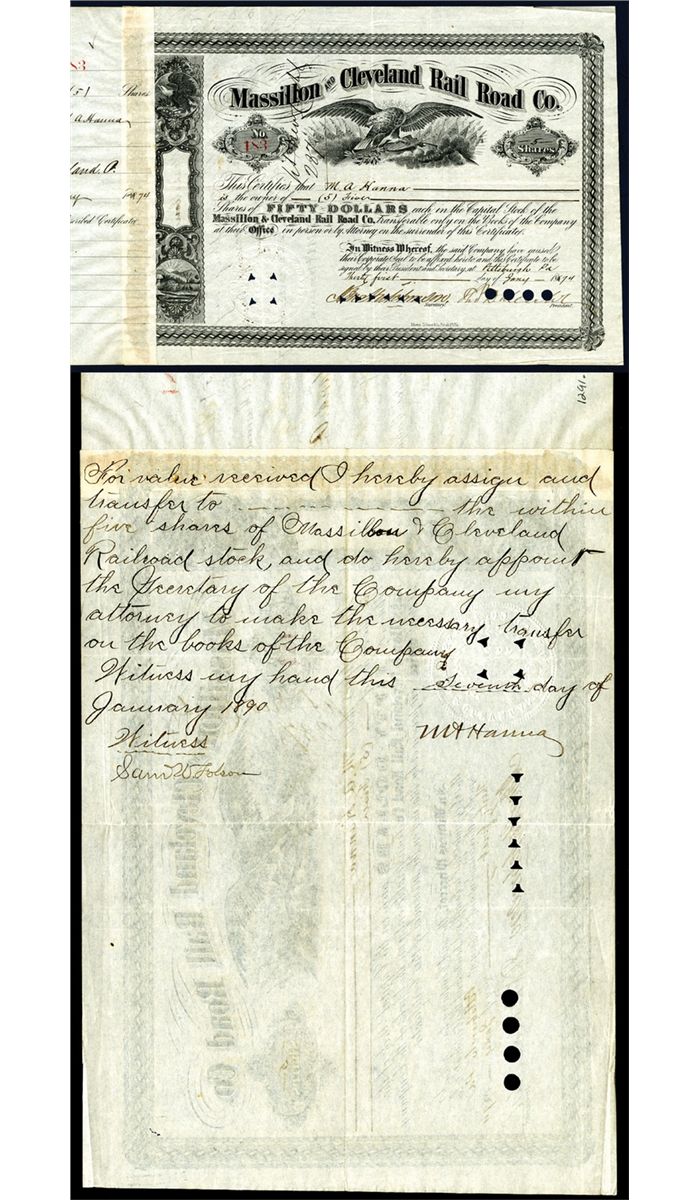 183
(5) Shares
M. A. Hanna
1874
Massillon AND Cleveland Rail Road Co.
No
183
Shares
This Certifies that M. A. Hanna
is the owner of (5) Five
Shares of FIFTY DOLLARS each in the Capital Stock of the
Massillon & Cleveland Rail Road Co. Transferable only on the Books of the Company
at their Office in person or by Attorney on the surrender of this Certificate.
In Witness Whereof, the said Company have caused
their Corporate Seal to be affixed hereto and this Certificate to be
signed by their President and Secretary at Pittsburgh Pa
Thirty first day of Jany 1874
Secretary.
President.
1291.
For value received I hereby assign and
transfer to the within
five shares of Massillon & Cleveland
Railroad stock, and do hereby appoint
the Secretary of the Company my
attorney to make the necessary transfer
on the books of the Company
Witness my hand this Seventh day of
January 1890
M A Hanna
Witness